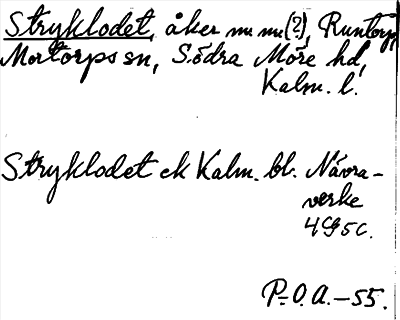 Stryklodet, åker nu nu (?), Runtorp,
Mortorps sn, Södra Möre hd,
Kalm. l.
Stryklodet ek Kalm. bl. Nävra-
verke
4G5c.
P.O.A. – 55.